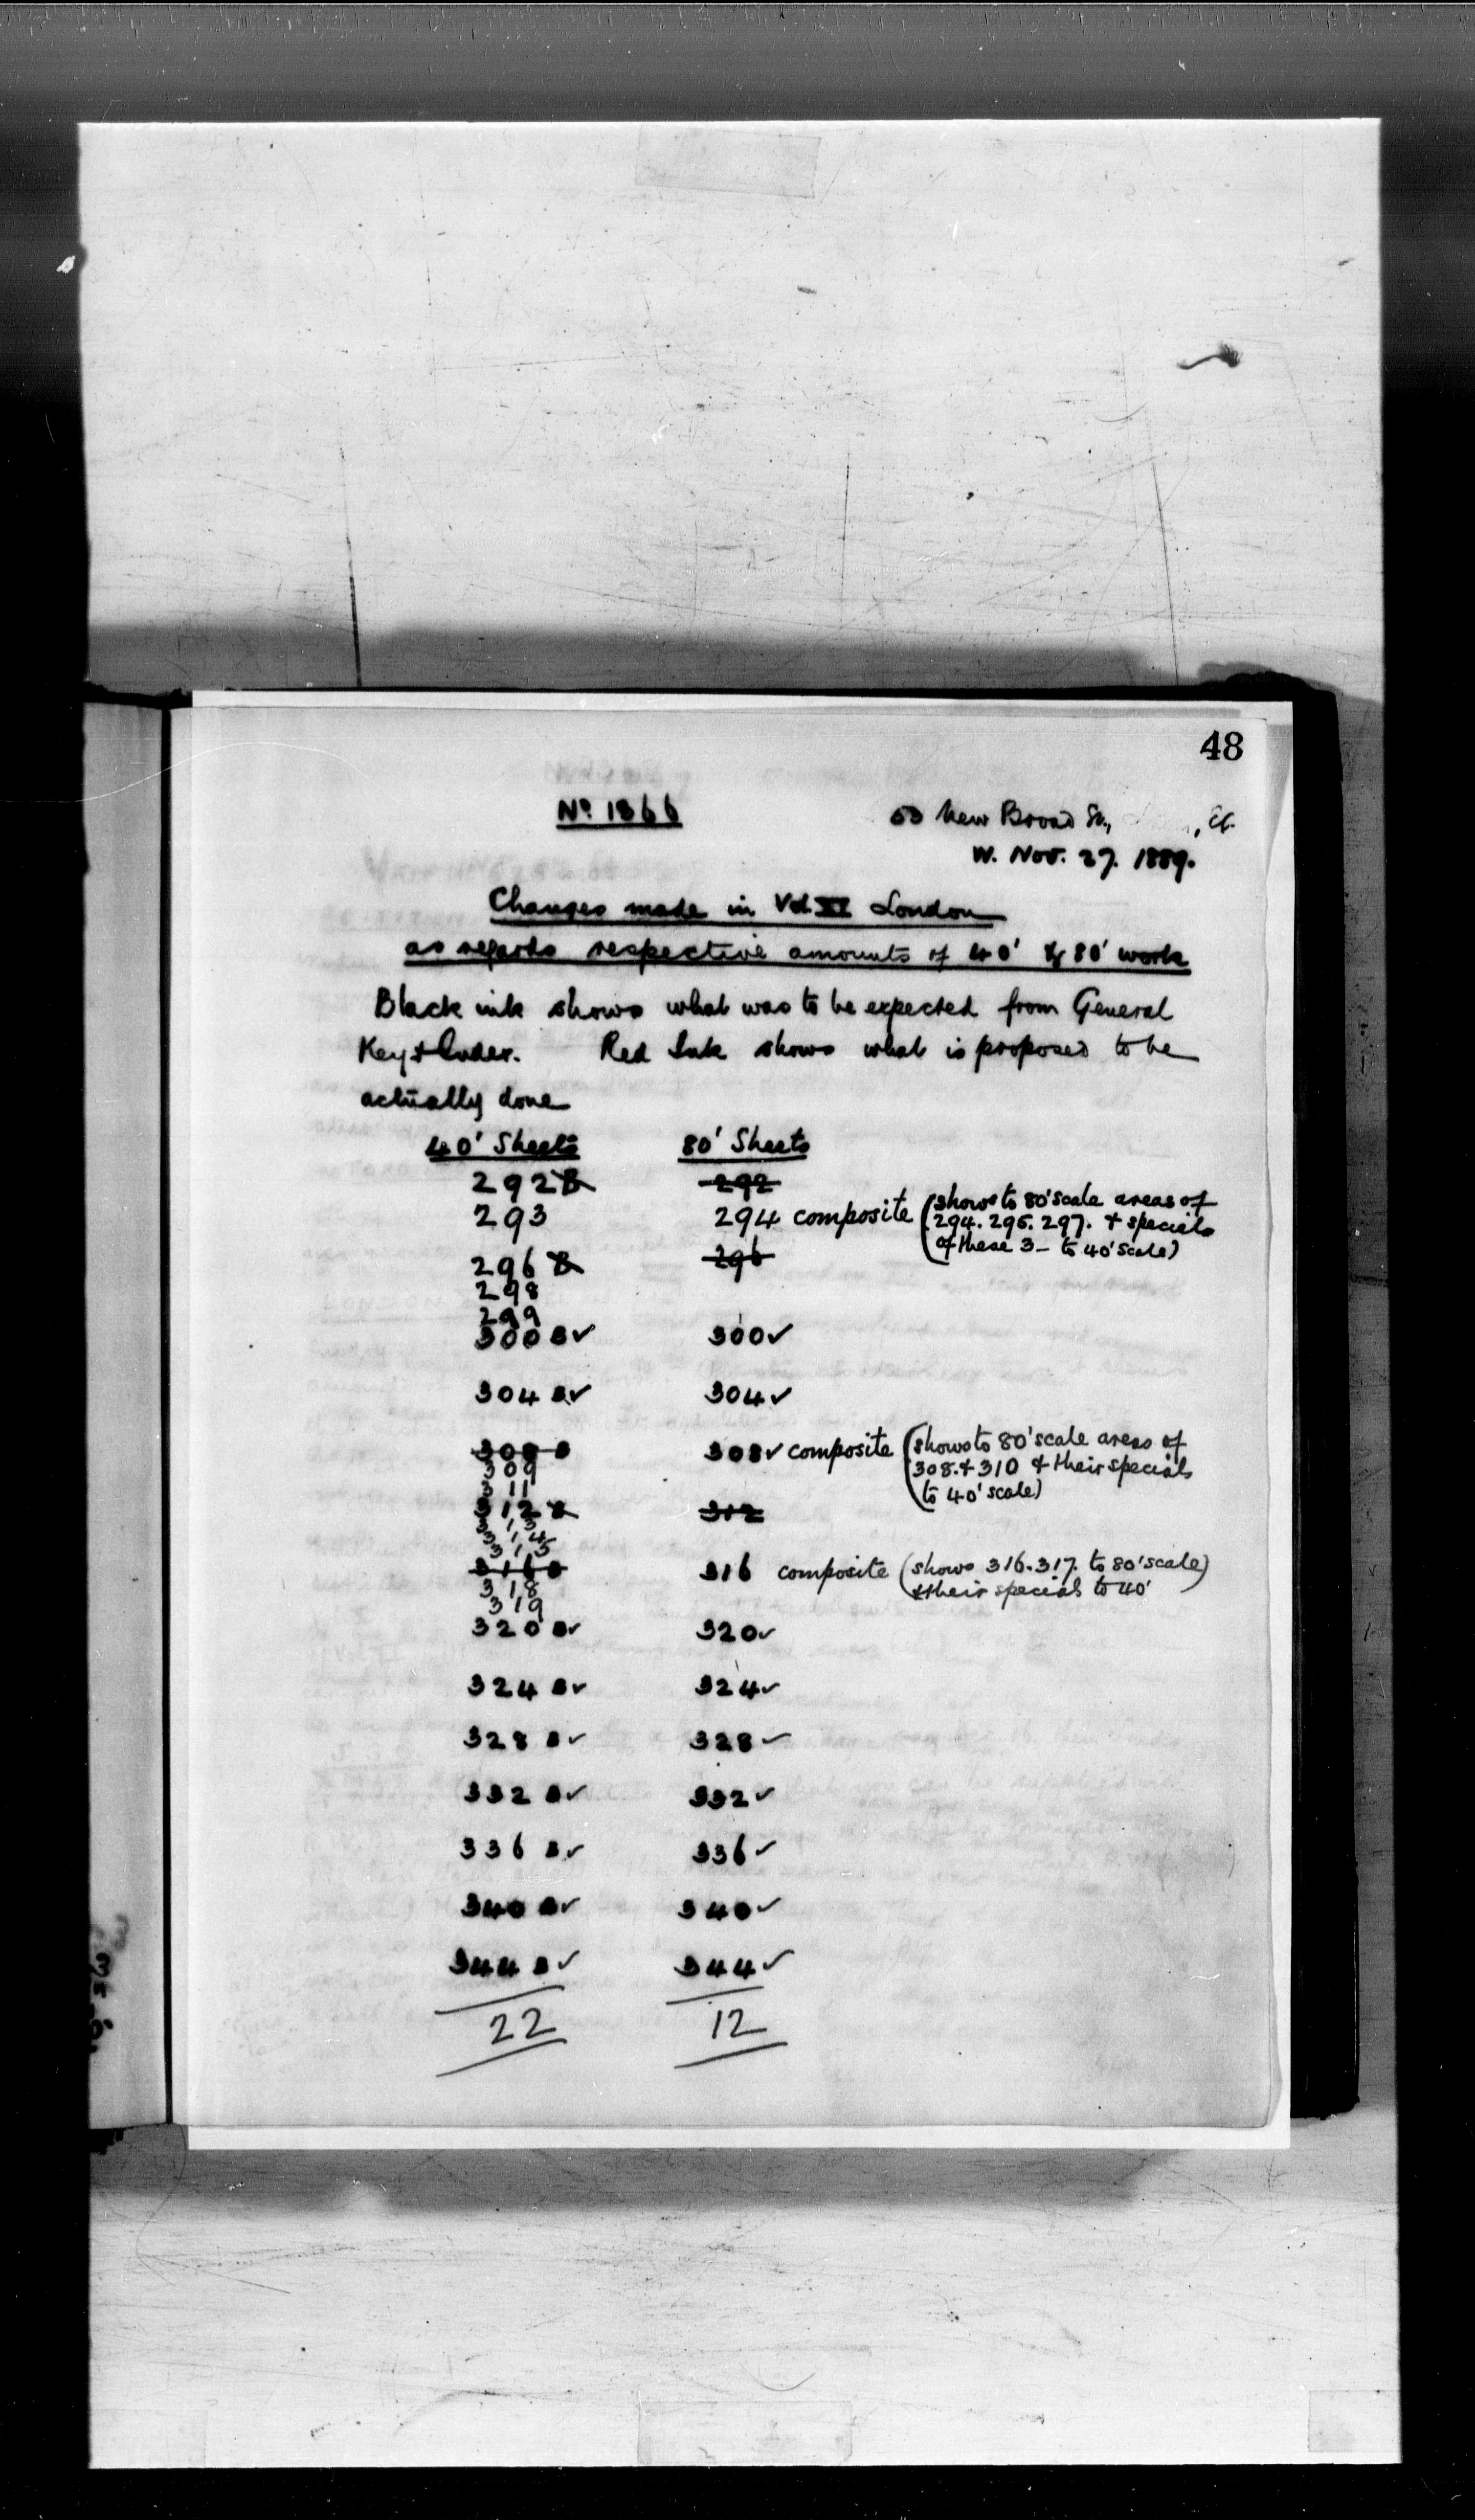 48
No. 1866
53 New Broad St., E.C.
W. Nov. 27. 1889.
Changes made in Vol. XI London
as regards respective amounts of 40' & 80' work
Black ink shows what was to be expected from General
Key & Index. Red Ink shows what is proposed to be
actually done
40' Sheets 80' Sheets
292B 292
293 294 composite (shows to 80' scale areas of
294. 295. 297. & specials
of these 3 - to 40' scale)
296 B 296
298
299
300 B ✓ 300 ✓
304 B ✓ 304 ✓
308 B 308 ✓ composite (shows to 80' scale areas of
309 308. & 310 & their specials
311 to 40' scale)
312 B 312
313
314
315
316 B 316 composite (shows 316. 317. to 80' scale)
318 & their specials to 40'
319
320 B ✓ 320 ✓
324 B ✓ 324 ✓
328 B ✓ 328 ✓
332 B ✓ 332 ✓
336 B ✓ 336 ✓
340 B ✓ 340 ✓
344 B ✓ 344 ✓
22 12